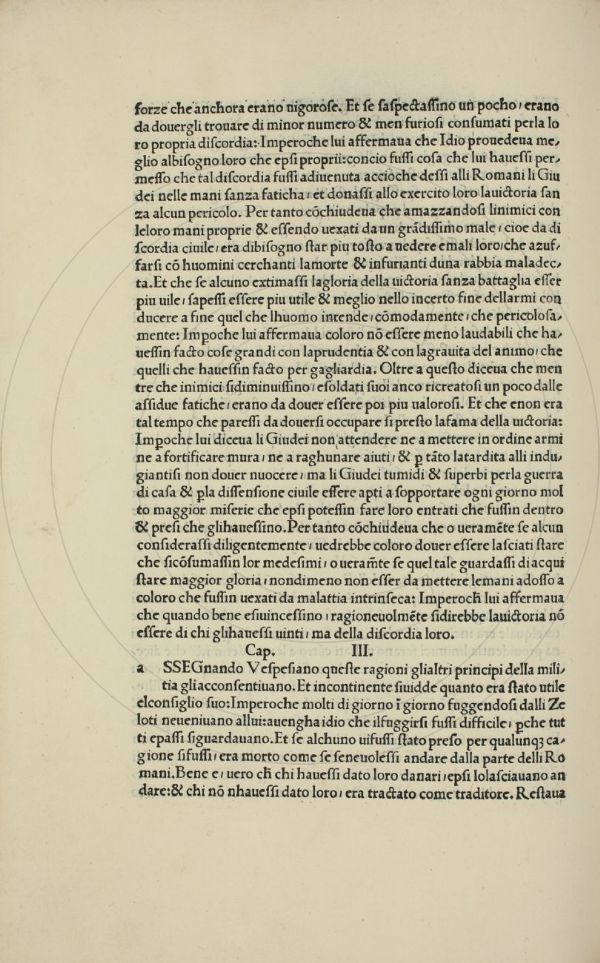 forze che anchora erano uigorose. Et se saspectassino un pocho, erano
da douergli trouare di minor numero & men furiosi consumati perla lo
ro propria discordia: Imperoche lui affermaua che Idio prouedeua me,
glio albisogno loro che epsi proprii: concio fussi cosa che lui hauessi per,
messo che tal discordia fussi adiuenuta accioche dessi alli Romani li Giu
dei nelle mani sanza faticha, et donassi allo exercito loro lauictoria san
za alcun pericolo. Per tanto cōchiudeua che amazzandosi linimici con
leloro mani proprie & essendo uexati da un grādissimo male, cioe da di
scordia ciuile, era dibisogno star piu tosto a uedere emali loro, che azuf,
farsi cō huomini cerchanti lamorte & infurianti duna rabbia maladec,
ta. Et che se alcuno extimassi lagloria della uictoria sanza battaglia esser
piu uile, sapessi essere piu utile & meglio nello incerto fine dellarmi con
ducere a fine quel che lhuomo intende, cōmodamente, che pericolosa,
mente: Impoche lui affermaua coloro nō essere meno laudabili che ha,
uessin facto cose grandi con laprudentia & con lagrauita del animo, che
quelli che hauessin facto per gagliardia. Oltre a questo diceua che men
tre che inimici sidiminuissino, esoldati suoi anco ricreatosi un poco dalle
assidue fatiche, erano da douer essere poi piu ualorosi. Et che enon era
tal tempo che paressi da douersi occupare si presto lafama della uictoria:
Impoche lui diceua li Giudei non attendere ne a mettere in ordine armi
ne a fortificare mura, ne a raghunare aiuti, & p tāto latardita alli indu,
giantisi non douer nuocere, ma li Giudei tumidi & superbi perla guerra
di casa & pla dissensione ciuile essere apti a sopportare ogni giorno mol
to maggior miserie che epsi potessin fare loro entrati che fussin dentro
& presi che glihauessino. Per tanto cōchiudeua che o ueramēte se alcun
considerassi diligentemente, uedrebbe coloro douer essere lasciati stare
che sicōsumassin lor medesimi, o ueram̄te se quel tale guardassi di acqui
stare maggior gloria, nondimeno non esser da mettere lemani adosso a
coloro che fussin uexati da malattia intrinseca: Imperoch̄ lui affermaua
che quando bene esiuincessino, ragioneuolmēte sidirebbe lauictoria nō
essere di chi glihauessi uinti, ma della discordia loro.
Cap. III.
a SSEGnando Vespesiano queste ragioni glialtri principi della mili,
tia gliacconsentiuano. Et incontinente siuidde quanto era stato utile
elconsiglio suo: Imperoche molti di giorno ī giorno fuggendosi dalli Ze
loti neueniuano allui: auengha idio che ilfuggirsi fussi difficile, pche tut
ti epassi siguardauano. Et se alchuno uifussi stato preso per qualunqꝫ ca,
gione sifussi, era morto come se seneuolessi andare dalla parte delli Ro
mani. Bene e, uero ch̄ chi hauessi dato loro danari, epsi lolasciauano an
dare: & chi nō nhauessi dato loro, era tractato come traditore. Restaua